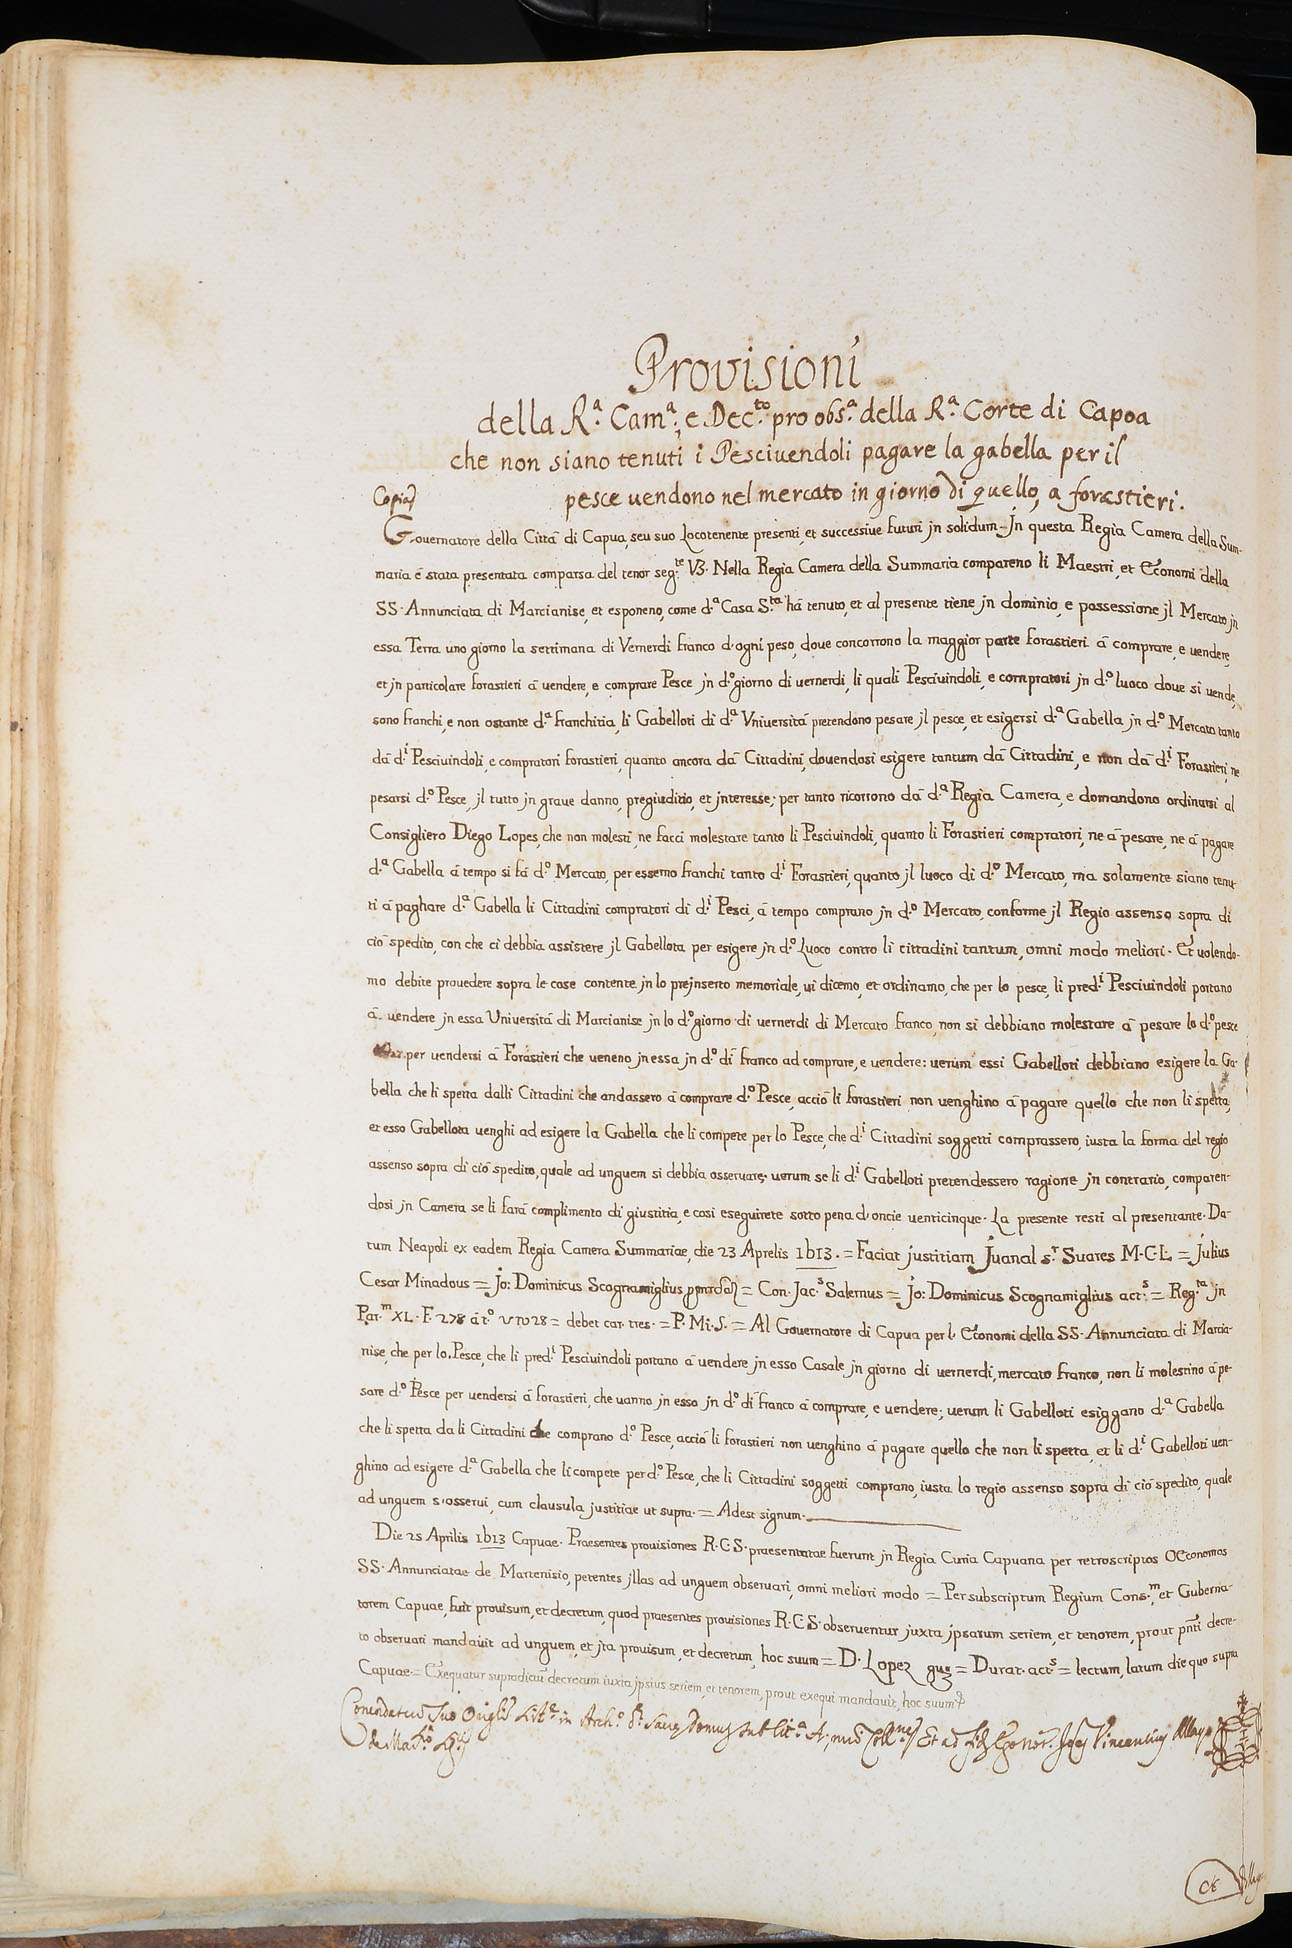 Provisioni
della R.ª Cam.ª, e Dec.to pro obs.ª della R.ª Corte di Capoa
che non siano tenuti i Pesciuendoli pagare la gabella per il
Copia pesce uendono nel mercato in giorno di quello, a forastieri.
Gouernatore della Cittá di Capua, seu suo Locotenente presenti, et successiue futuri jn solidum - Jn questa Regia Camera della Sum-
maria é stata presentata comparsa del tenor seg.te V3. Nella Regia Camera della Summaria compareno li Maestri, et Economi della
SS. Annunciata di Marcianise, et esponeno, come d.ª Casa S.ta há tenuto, et al presente tiene jn dominio, e possessione jl Mercato jn
essa Terra uno giorno la settimana di Vernerdi franco d'ogni peso, doue concorrono la maggior parte forastieri á comprare, e uendere,
et jn particolare forastieri á uendere, e comprare Pesce jn d.º giorno di uernerdi, li quali Pesciuindoli, e compratori jn d.º luoco doue si uende,
sono franchi, e non ostante d.ª franchitia, li Gabelloti di d.ª Vniuersitá pretendono pesare jl pesce, et esigersi d.ª Gabella jn d.º Mercato tanto
dá d.i Pesciuindoli, e compratori forastieri, quanto ancora dá Cittadini, douendosi esigere tantum dá Cittadini, e non dá d.i Forastieri, ne
pesarsi d.º Pesce, jl tutto jn graue danno, pregiuditio, et jnteresse; per tanto ricorrono dá d.ª Regia Camera, e domandono ordinarsi al
Consigliero Diego Lopes, che non molesti, ne facci molestare tanto li Pesciuindoli, quanto li Forastieri compratori, ne á pesare, ne á pagare
d.ª Gabella á tempo si fá d.º Mercato, per esserno franchi tanto d.i Forastieri, quanto jl luoco di d.º Mercato, ma solamente siano tenu-
ti á paghare d.ª Gabella li Cittadini compratori di d.i Pesci, á tempo comprano jn d.º Mercato, conforme jl Regio assenso sopra di
ció spedito, con che ci debbia assistere jl Gabellota per esigere jn d.º Luoco contro li cittadini tantum, omni modo meliori. Et uolendo-
mo debite prouedere sopra le cose contente jn lo prejnserto memoriale, ui dicemo, et ordinamo, che per lo pesce, li pred.i Pesciuindoli portano
á uendere jn essa Uniuersitá di Marcianise jn lo d.º giorno di uernerdi di Mercato franco, non si debbiano molestare á pesare lo d.º pesce
per uendersi á Forastieri che ueneno jn essa jn d.º dí franco ad comprare, e uendere: uerúm essi Gabelloti debbiano esigere la Ga-
bella che li spetta dalli Cittadini che andassero á comprare d.º Pesce, acció li forastieri non uenghino á pagare quello che non li spetta,
et esso Gabellota uenghi ad esigere la Gabella che li compete per lo Pesce, che d.i Cittadini soggetti comprassero, iusta la forma del regio
assenso sopra di ció spedito, quale ad unguem si debbia osseruare; uerum se li d.i Gabelloti pretendessero ragione jn contrario, comparen-
dosi jn Camera se li fará complimento di giustitia, e cosi eseguirete sotto pena d'oncie uenticinque. La presente resti al presentante. Da-
tum Neapoli ex eadem Regia Camera Summariae, die 23 Aprelis 1613. = Faciat justitiam Juanal s.r Suares M.C.L. = Julius
Cesar Minadous = Jo: Dominicus Scognamiglius = Con. Jac.s Salernus = Jo: Dominicus Scognamiglius act.s = Reg.ta jn
Par.m XL. F. 278 á t.º = debet car. tres. = P. Mi. S. = Al Gouernatore di Capua per l' Economi della SS. Annunciata di Marcia-
nise, che per lo Pesce, che li pred.i Pesciuindoli portano á uendere jn esso Casale jn giorno di uernerdi, mercato franco, non li molestino á pe-
sare d.º Pesce per uendersi á forastieri, che uanno jn esso jn d.º dí franco á comprare, e uendere; uerum li Gabelloti esiggano d.ª Gabella
che li spetta da li Cittadini che comprano d.º Pesce, acció li forastieri non uenghino á pagare quello che non li spetta, et li d.i Gabelloti uen-
ghino ad esigere d.ª Gabella che li compete per d.º Pesce, che li Cittadini soggetti comprano, iusta lo regio assenso sopra di ció spedito, quale
ad unguem s'osserui, cum clausula justitiae ut supra. = Adest signum.
Die 25 Aprilis 1613 Capuae. Praesentes prouisiones R.C.S. praesentatae fuerunt jn Regia Curia Capuana per retroscriptos Oeconomos
SS. Annunciatae de Martenisio, petentes jllas ad unguem obseruari, omni meliori modo = Per subscriptum Regium Cons.m, et Guberna-
torem Capuae, fuit prouisum, et decretum, quod praesentes prouisiones R.C.S. obseruentur juxta jpsarum seriem, et tenorem, prout pnti decre-
to obseruari mandauit ad unguem, et jta prouisum, et decretum, hoc suum = D. Lopez = Durat. act.s = lectum, latum die quo supra
Capuae = Exequatur supradictu decretum iuxta jpsius seriem, et tenorem, prout exequi mandauit, hoc suum